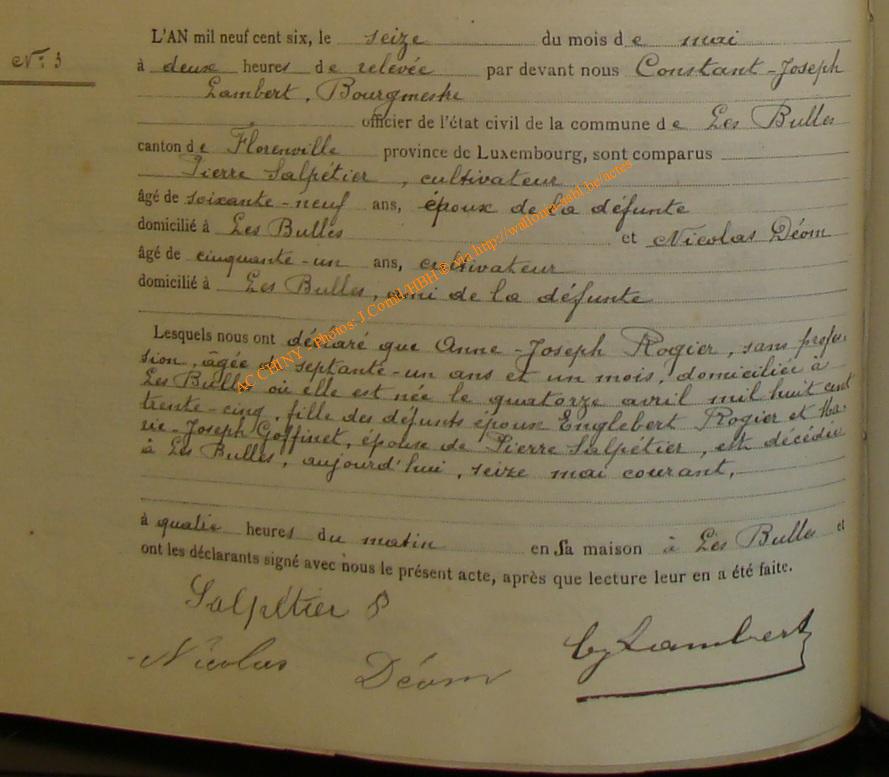 L'AN mil neuf cent six, le seize du mois de mai
N° 3
à deux heures de relevée par devant nous Constant-Joseph
Lambert, Bourgmestre
officier de l'état civil de la commune de Les Bulles
canton de Florenville province de Luxembourg, sont comparus
Pierre Salpétier, cultivateur
âgé de soixante-neuf ans, époux de la défunte
domicilié à Les Bulles et Nicolas Déom
âgé de cinquante-un ans, cultivateur
domicilié à Les Bulles, ami de la défunte
Lesquels nous ont déclaré que Anne-Joseph Rogier, sans profes-
sion, âgée de septante-un ans et un mois, domiciliée à
Les Bulles où elle est née le quatorze avril mil huit cent
trente-cinq, fille des défunts époux Englebert Rogier et Ma-
rie-Joseph Goffinet, épouse de Pierre Salpétier, est décédée
à Les Bulles, aujourd'hui, seize mai courant,
à quatre heures du matin en sa maison à Les Bulles et
ont les déclarants signé avec nous le présent acte, après que lecture leur en a été faite.
Salpétier
Nicolas Déom
Lambert
AC CHINY - photos J.Comd-HBH & via http://wallonia-asbl.be/actes